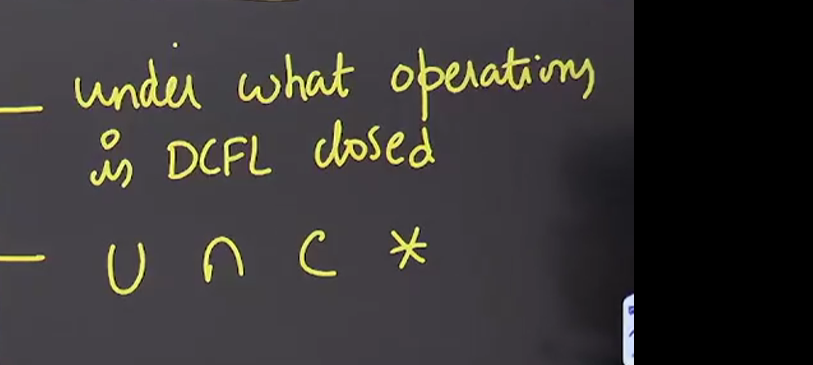 — under what operations
is DCFL closed
— ∪ ∩ C *